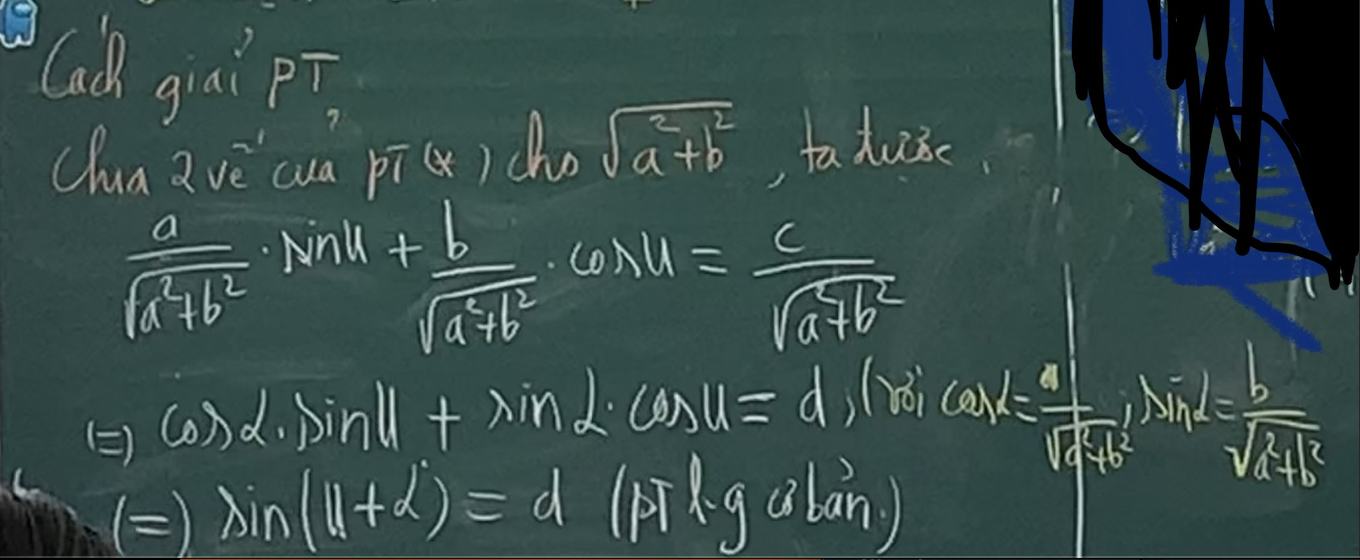 Cách giải PT
Chia 2 vế của pT (*) cho √(a²+b²), ta được.
a/√(a²+b²) · sinu + b/√(a²+b²) · cosu = c/√(a²+b²)
(=) cosα.sinu + sinα.cosu = d, (với cosα = a/√(a²+b²); sinα = b/√(a²+b²)
(=) sin(u+α) = d (pT lg cơ bản.)